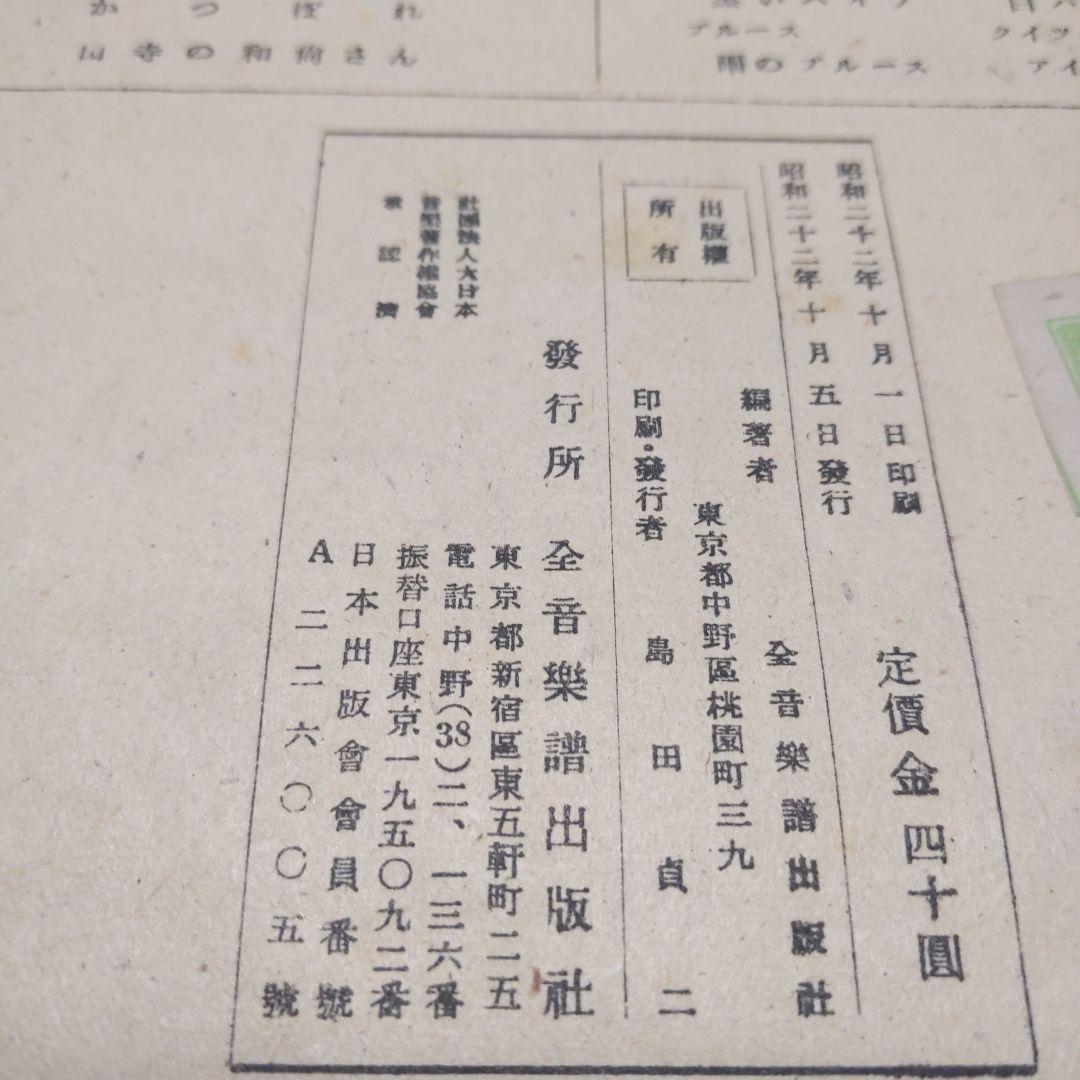 かつぽれ
山寺の和尚さん
ブルース
雨のブルース
クイツ
アイ
昭和二十二年十月一日印刷
昭和二十二年十月五日發行
定價金四十圓
出版權
所有
編著者 全音樂譜出版社
東京都中野區桃園町三九
印刷・發行者 島田貞二
發行所 全音樂譜出版社
東京都新宿區東五軒町二五
電話中野(38)二、一三六番
振替口座東京一九五〇九二番
日本出版會會員番號
A二二六〇〇五號
社團法人大日本
音樂著作權協會
承認濟